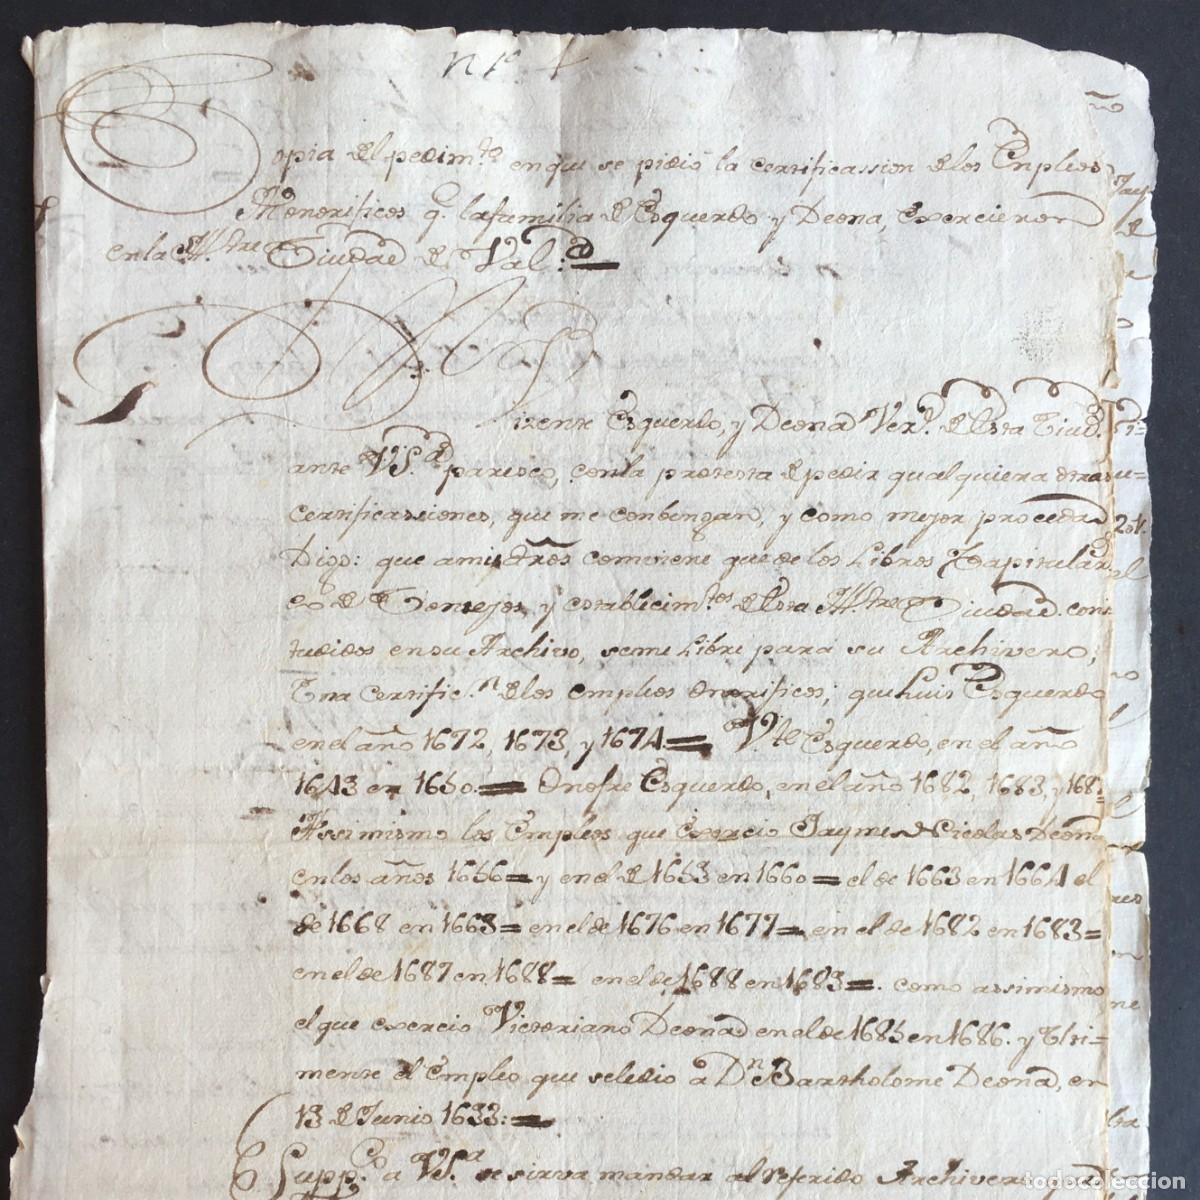 Nº 1
Copia del pedimto en que se pidió la certificassion delos Enpleos
Honorificos q. la familia de Esquerdo y Deona, exercieron
en la Illtre Ciudad de Vala.
Vizente Esquerdo, y Deona Verº. de esta Ciud.
ante VSª paresco, con la protesta de pedir qualquiera otras
certificassiones, que me conbengan, y como mejor proceda
Digo: que a mi drõs comviene que de los Libros Capitular
es de Consejos, y establecimtos. de esta Illtre Ciudad. cons
tudidos en su Archivo, seme libre para su Archivero,
Una certific.n delos emplios onorificos; que Luis Esquerdo
en el año 1672, 1673, y 1674.= Vte Esquerdo, en el año
1643 en 1650.= Onofre Esquerdo, en el año 1682, 1683, y 168
Assimismo los Empleos que Exercio Jayme Nicolas Deona
en los años 1656= y en el de 1653 en 1660= el de 1663 en 1664 el
de 1668 en 1663= en el de 1676 en 1677= en el de 1682 en 1683=
en el de 1687 en 1688= en el de 1688 en 1683=. como assimismo
el que exercio Victoriano Deona en el de 1685 en 1686. y Ulti=
mente el Empleo que seledio a Dn Bartholome Deona, en
13 de Junio 1633:=
Suppco a VSª se sirva mandar al referido Archivero
todocoleccion